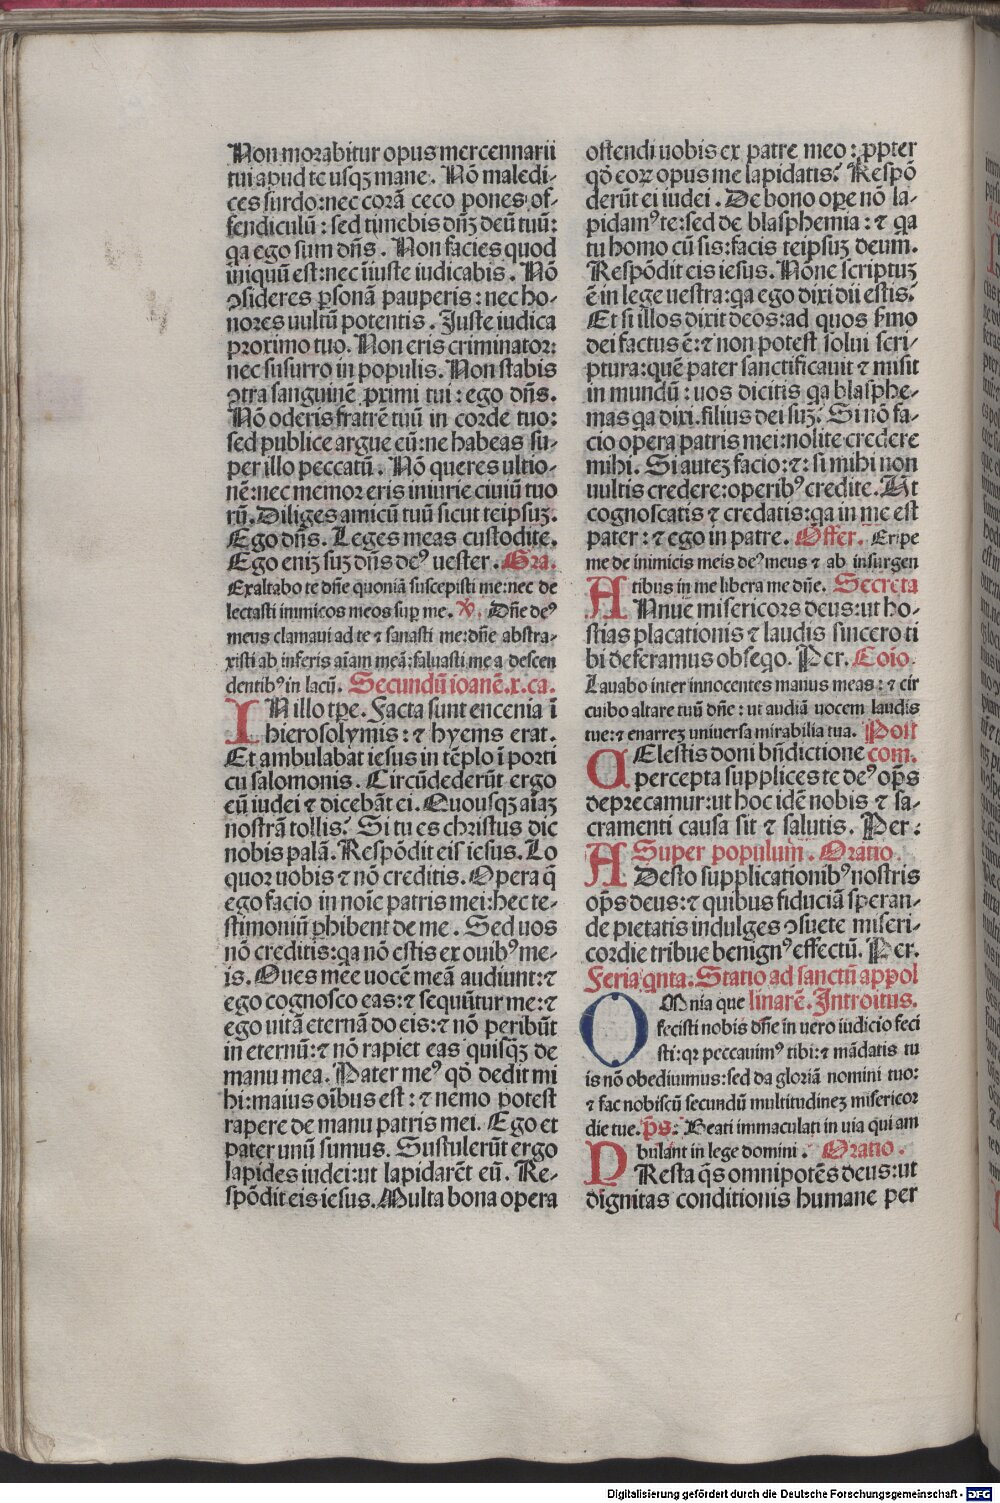 Non morabitur opus mercennarii
tui apud te usqꝫ mane. Nō maledi-
ces surdo: nec corā ceco pones of-
fendiculū: sed timebis dn̄ꝫ deū tuū:
qa ego sum dn̄s. Non facies quod
iniquū est: nec iīuste iudicabis. Nō
ↄsideres ꝑsonā pauperis: nec ho-
nores uultū potentis. Juste iudica
proximo tuo. Non eris criminator:
nec susurro in populis. Non stabis
ↄtra sanguinē ꝓximi tui: ego dn̄s.
Nō oderis fratrē tuū in corde tuo:
sed publice argue eū: ne habeas su-
per illo peccatū. Nō queres ultio-
nē: nec memor eris iniurie ciuiū tuo
rū. Diliges amicū tuū sicut teipsuꝫ.
Ego dn̄s. Leges meas custodite.
Ego eniꝫ suꝫ dn̄s deꝰ uester. Gra.
Exaltabo te dn̄e quoniā suscepisti me: nec de
lectasti inimicos meos suꝑ me. ℣. Dn̄e deꝰ
meus clamaui ad te ⁊ sanasti me: dn̄e abstra-
xisti ab inferis aīam meā: saluasti me a descen
dentibꝰ in lacū. Secundū ioanē. x. ca.
IN illo tꝑe. Facta sunt encenia ī
hierosolymis: ⁊ hyems erat.
Et ambulabat iesus in tēplo ī porti
cu salomonis. Circūdederūt ergo
eū iudei ⁊ dicebāt ei. Quousqꝫ aīaꝫ
nostrā tollis? Si tu es christus dic
nobis palā. Respōdit eis iesus. Lo
quor uobis ⁊ nō creditis. Opera q̄
ego facio in noīe patris mei: hec te-
stimoniū ꝓhibent de me. Sed uos
nō creditis: qa nō estis ex ouibꝰ me-
is. Oues mee uocē meā audiunt: ⁊
ego cognosco eas: ⁊ sequūtur me: ⁊
ego uitā eternā do eis: ⁊ nō peribūt
in eternū: ⁊ nō rapiet eas quisqꝫ de
manu mea. Pater meꝰ qd̄ dedit mi
hi: maius oībus est: ⁊ nemo potest
rapere de manu patris mei. Ego et
pater unū sumus. Sustulerūt ergo
lapides iudei: ut lapidarēt eū. Re-
spōdit eis iesus. Multa bona opera
ostendi uobis ex patre meo: ꝓpter
qd̄ eoꝝ opus me lapidatis? Respō
derūt ei iudei. De bono oꝑe nō la-
pidamꝰ te: sed de blasphemia: ⁊ qa
tu homo cū sis: facis teipsuꝫ deum.
Respōdit eis iesus. Nōne scriptuꝫ
ē in lege uestra: qa ego dixi dii estis?
Et si illos dixit deos: ad quos ẜmo
dei factus ē: ⁊ non potest solui scri-
ptura: quē pater sanctificauit ⁊ misit
in mundū: uos dicitis qa blasphe-
mas qa dixi. filius dei suꝫ? Si nō fa-
cio opera patris mei: nolite credere
mihi. Si auteꝫ facio: ⁊: si mihi non
uultis credere: operibꝰ credite. Ut
cognoscatis ⁊ credatis: qa in me est
pater: ⁊ ego in patre. Offer. Eripe
me de inimicis meis deꝰ meus ⁊ ab insurgen
tibus in me libera me dn̄e. Secreta
ANnue misericors deus: ut ho-
stias placationis ⁊ laudis sincero ti
bi deferamus obseqo. Per. Coīo.
Lauabo inter innocentes manus meas: ⁊ cir
cuibo altare tuū dn̄e: ut audiā uocem laudis
tue: ⁊ enarreꝫ uniuersa mirabilia tua. Post
CElestis doni bn̄dictione com.
percepta supplices te deꝰ oꝑs
deprecamur: ut hoc idē nobis ⁊ sa-
cramenti causa sit ⁊ salutis. Per:
Super populum. Oratio.
ADesto supplicationibꝰ nostris
oꝑs deus: ⁊ quibus fiduciā speran-
de pietatis indulges ↄsuete miseri-
cordie tribue benignꝰ effectū. Per.
Feria qnta. Statio ad sanctū appol
OMnia que linarē. Introitus.
fecisti nobis dn̄e in uero iudicio feci
sti: qꝛ peccauimꝰ tibi: ⁊ mādatis tu
is nō obediuimus: sed da gloriā nomini tuo:
⁊ fac nobiscū secundū multitudineꝫ misericor
die tue. p̄s. Beati immaculati in uia qui am
bulant in lege domini. Oratio.
PResta q̄s omnipotēs deus: ut
dignitas conditionis humane per
Digitalisierung gefördert durch die Deutsche Forschungsgemeinschaft - DFG